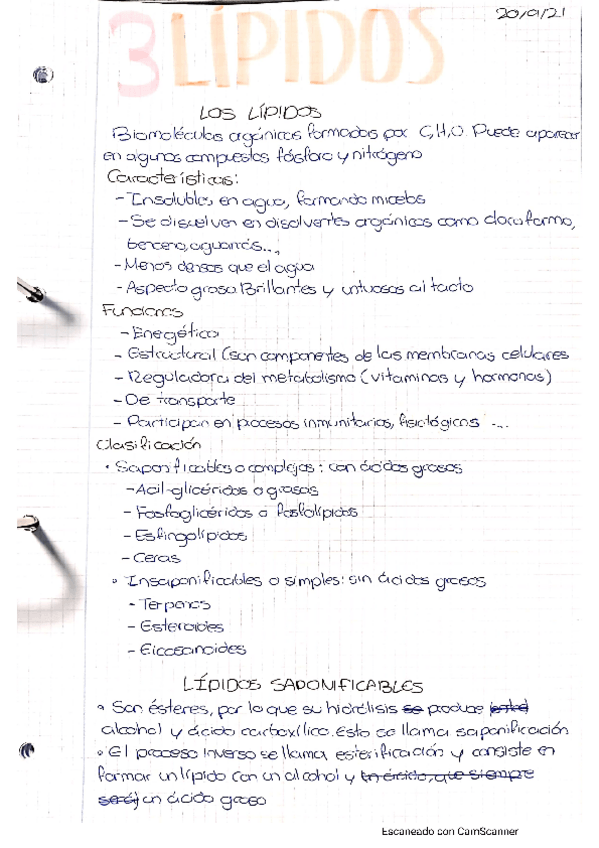 20/9/21
3 LÍPIDOS
LOS LÍPIDOS
Biomoléculas orgánicas formadas por C,H,O. Puede aparecer
en algunos compuestos fósforo y nitrógeno
Características:
- Insolubles en agua, formando micelas
- Se disuelven en disolventes orgánicos como cloroformo,
benceno, aguarrás...,
- Menos densos que el agua
- Aspecto graso. Brillantes y untuosos al tacto
Funciones
- Energética
- Estructural (son componentes de las membranas celulares
- Reguladora del metabolismo (vitaminas y hormonas)
- De transporte
- Participan en procesos inmunitarios, fisiológicos ...
Clasificación
• Saponificables o complejos: con ácidos grasos
- Acil-glicéridos o grasas
- Fosfoglicéridos o fosfolípidos
- Esfingolípidos
- Ceras
• Insaponificables o simples: sin ácidos grasos
- Terpenos
- Esteroides
- Eicosanoides
LÍPIDOS SAPONIFICABLES
• Son ésteres, por lo que su hidrólisis se produce
alcohol y ácido carboxílico. Esto se llama saponificación
• El proceso inverso se llama esterificación y consiste en
formar un lípido con un alcohol y un ácido, que siempre
será un ácido graso
Escaneado con CamScanner